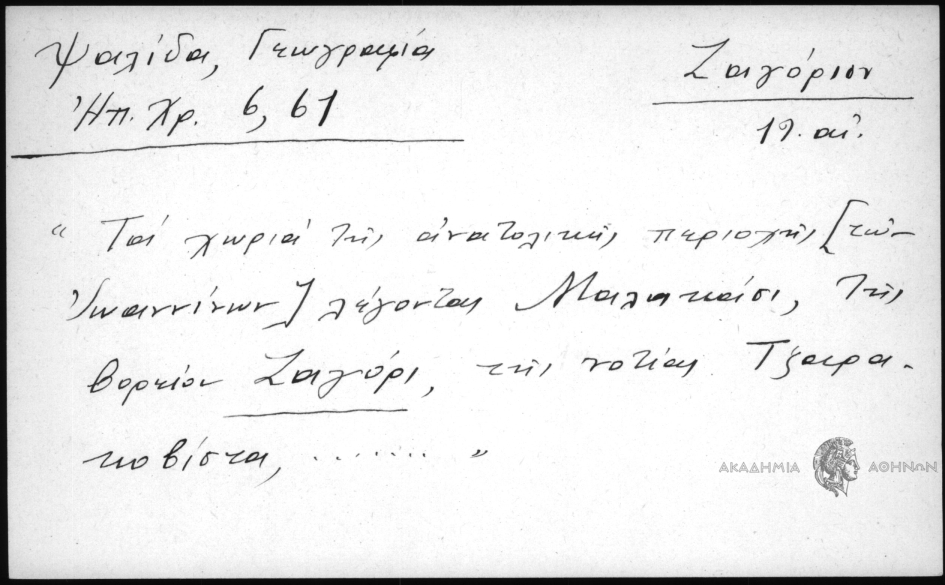 Ψαλίδα, Γεωγραφία
Ἠπ. Χρ. 6, 61
Ζαγόριον
19. αἰ.
“ Τά χωριά τῆς ἀνατολικῆς περιοχῆς [τῶν
Ἰωαννίνων] λέγονται Μαλακάσι, τῆς
βορείου Ζαγόρι, τῆς νοτίας Τζερα-
κοβίστα, ........ ”
ΑΚΑΔΗΜΙΑ ΑΘΗΝΩΝ